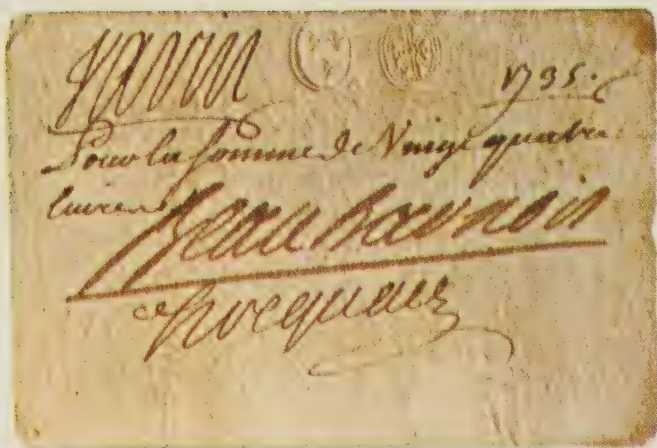 Varin 1735.
Pour la somme de Vingt quatre
livres
Beauharnois
Hocquart